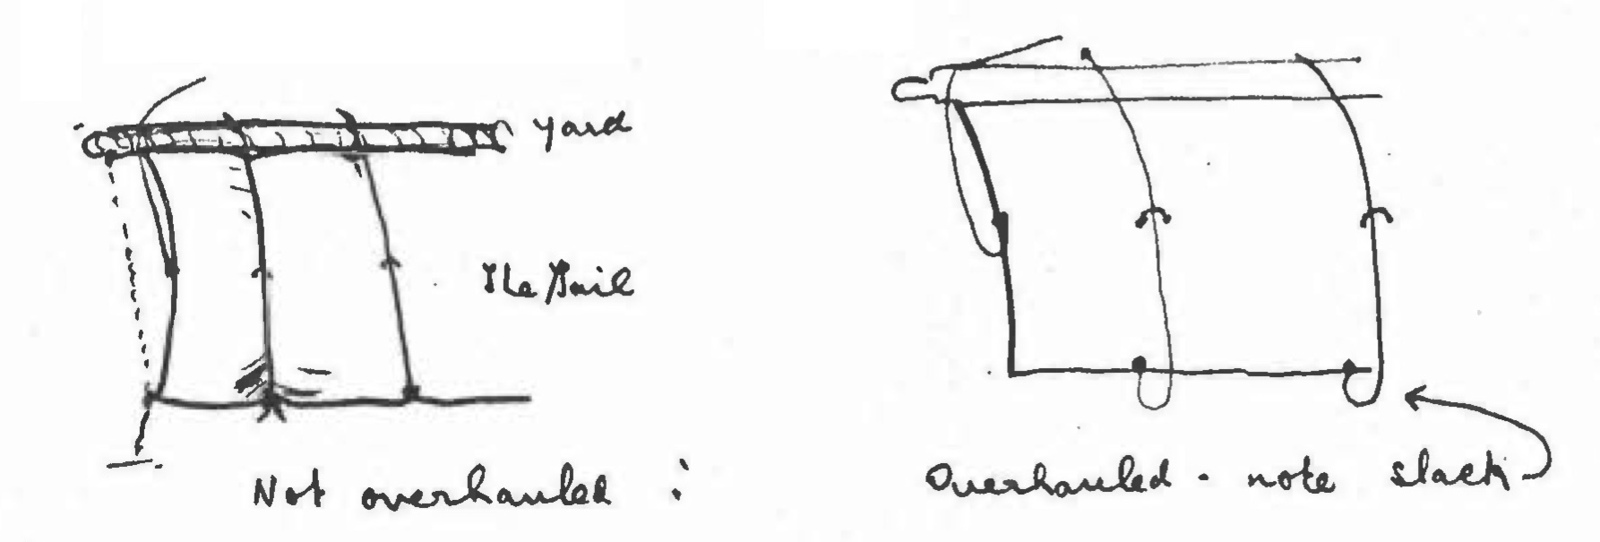 yard
The Sail
Not overhauled :
Overhauled - note slack